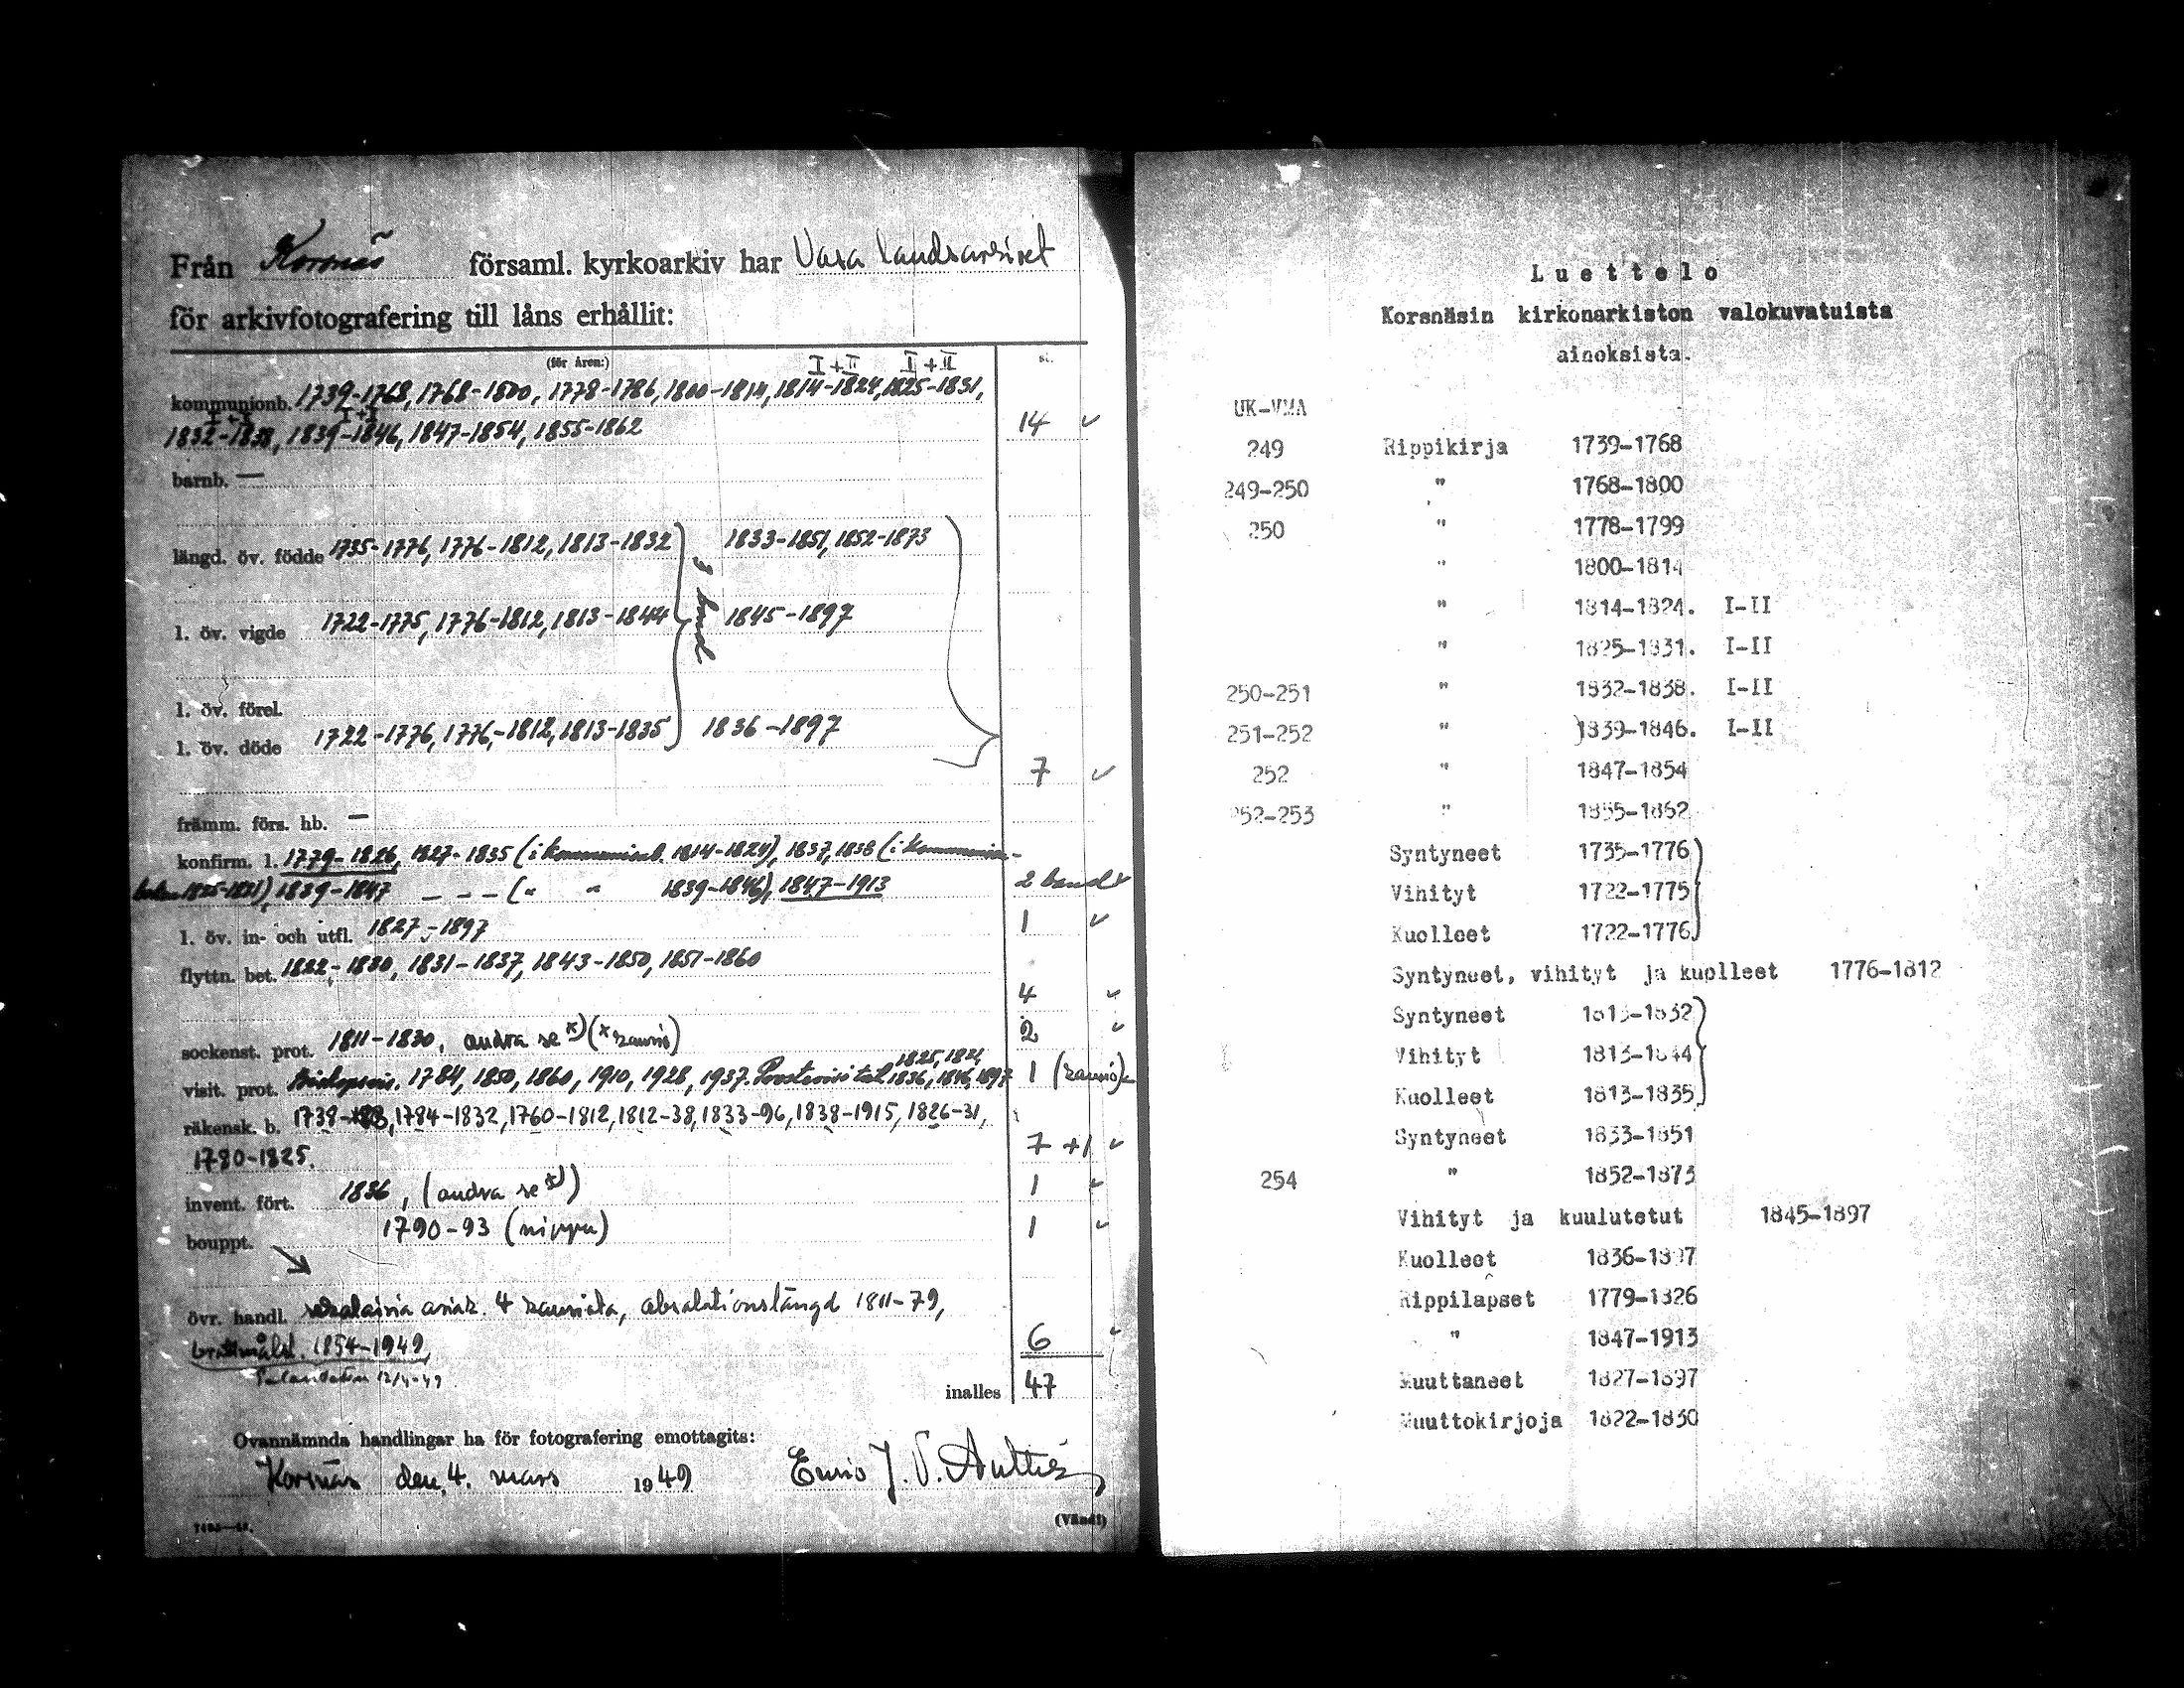 Från Korsnäs församl. kyrkoarkiv har Vasa landsarkivet
för arkivfotografering till låns erhållit:
(för åren:) st.
I+II I+II
kommunionb. 1739-1768, 1768-1800, 1778-1786, 1800-1814, 1814-1824, 1825-1831,
I+II I+II
1832-1838, 1839-1846, 1847-1854, 1855-1862 14 ✓
barnb. —
längd. öv. födde 1735-1776, 1776-1812, 1813-1832 1833-1851, 1852-1873
3 band
l. öv. vigde 1722-1775, 1776-1812, 1813-1844 1845-1897
l. öv. förel.
l. öv. döde 1722-1776, 1776-1812, 1813-1835 1836-1897
7 ✓
främm. förs. hb. —
konfirm. l. 1779-1826, 1827-1835 (i kommunionb. 1814-1824), 1837, 1838 (i kommunion-
boken 1825-1831), 1839-1847 — — — (" " 1839-1846), 1847-1913 2 band ✓
l. öv. in- och utfl. 1827-1897 1 ✓
flyttn. bet. 1822-1830, 1831-1837, 1843-1850, 1851-1860
4 ✓
sockenst. prot. 1811-1830, andra se x) (x 2 ✓
visit. prot. Biskopsvis. 1784, 1850, 1860, 1910, 1928, 1937. 1825, 1836, 1846, 1897 1
räkensk. b. 1784-1832, 1760-1812, 1812-38, 1833-96, 1838-1915, 1826-31,
1780-1825. 7 +1 ✓
invent. fört. 1836, (andra se x)) 1 ✓
bouppt. 1790-93 (nippu) 1 ✓
övr. handl. sekalaisia asiak. 4 absolutionslängd 1811-79,
1854-1949 6 ✓
12/4-49
inalles 47
Ovannämnda handlingar ha för fotografering emottagits:
Korsnäs den 4. mars 1949 J. V.
(Vänd!)
Luettelo
Korsnäsin kirkonarkiston valokuvatuista
ainoksista.
UK-VMA
249 Rippikirja 1739-1768
249-250 " 1768-1800
250 " 1778-1799
" 1800-1814
" 1814-1824. I-II
" 1825-1831. I-II
250-251 " 1832-1838. I-II
251-252 " 1839-1846. I-II
252 " 1847-1854
252-253 " 1855-1862
Syntyneet 1735-1776
Vihityt 1722-1775
Kuolleet 1722-1776
Syntyneet, vihityt ja kuolleet 1776-1812
Syntyneet 1813-1832
Vihityt 1813-1844
Kuolleet 1813-1835
Syntyneet 1833-1851
254 " 1852-1873
Vihityt ja kuulutetut 1845-1897
Kuolleet 1836-1897
Rippilapset 1779-1826
" 1847-1913
Muuttaneet 1827-1897
Muuttokirjoja 1822-1830